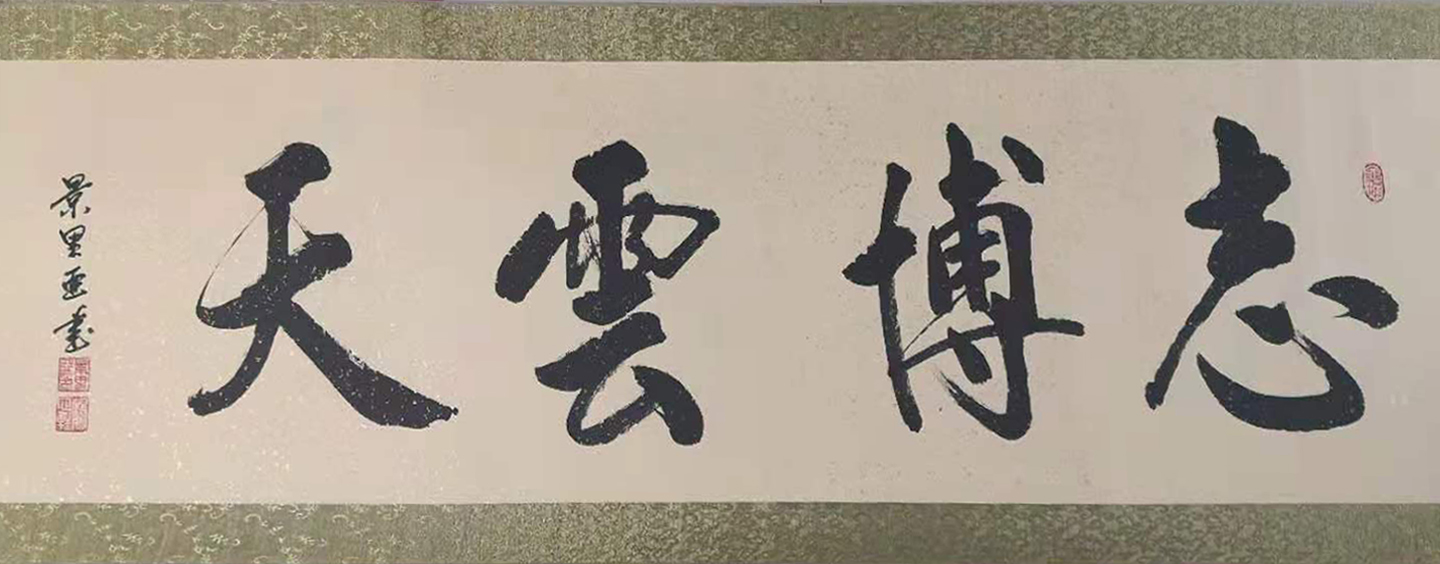 志博雲天
景里亞書